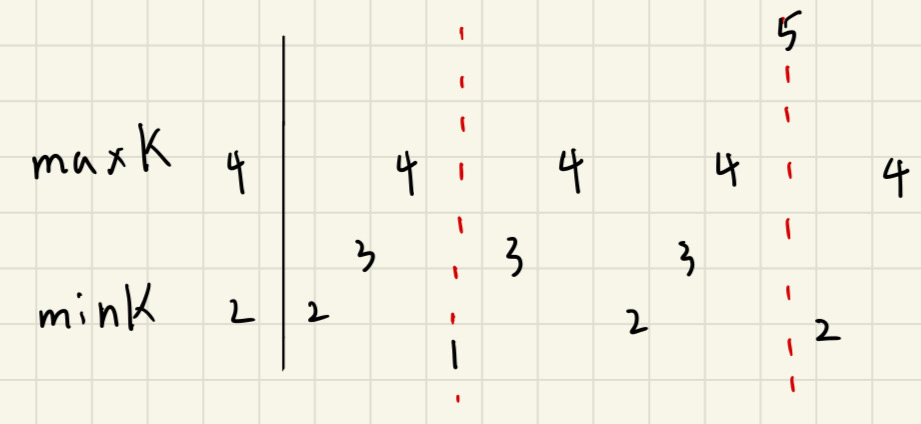 5
maxK 4 4 4 4 4
3 3 3
minK 2 2 2 2
1